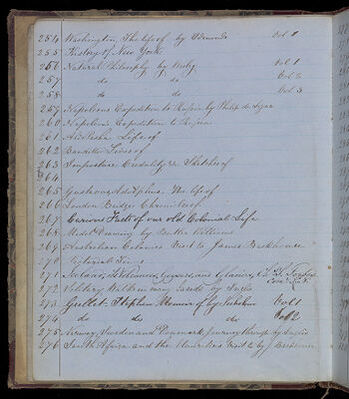 254 Washington, The life of by Edmonds Vol 1
255 History of New York
256 Natural Philosophy by Vol 1
257 do do Vol 2
258 do do Vol 3
259 Napoleons Expedition to Russia by Philip de Segur
260 Napoleons Expedition to Russia
261 Ali Pasha Life of
262 Banditti Lives of
263 Imposture Credulity &c Sketches of
264
265 Gustavus Adolphus The life of
266 London Bridge Chronicles of
267 Curious Facts of our old Colonial Life
268 Mast by Butler Williams
269 Australian Colonies Visit to James Backhouse
270 Pictorial
271 Volcanoes, Geysers, and Glaciers,
272 Solitary
273 Grellet Stephen Memoir of by Seebohm Vol 1
274 do do do Vol 2
275 Norway, Sweden and Denmark Journey through by
276 South Africa and the Mauritius Visit 2 by J Backhouse